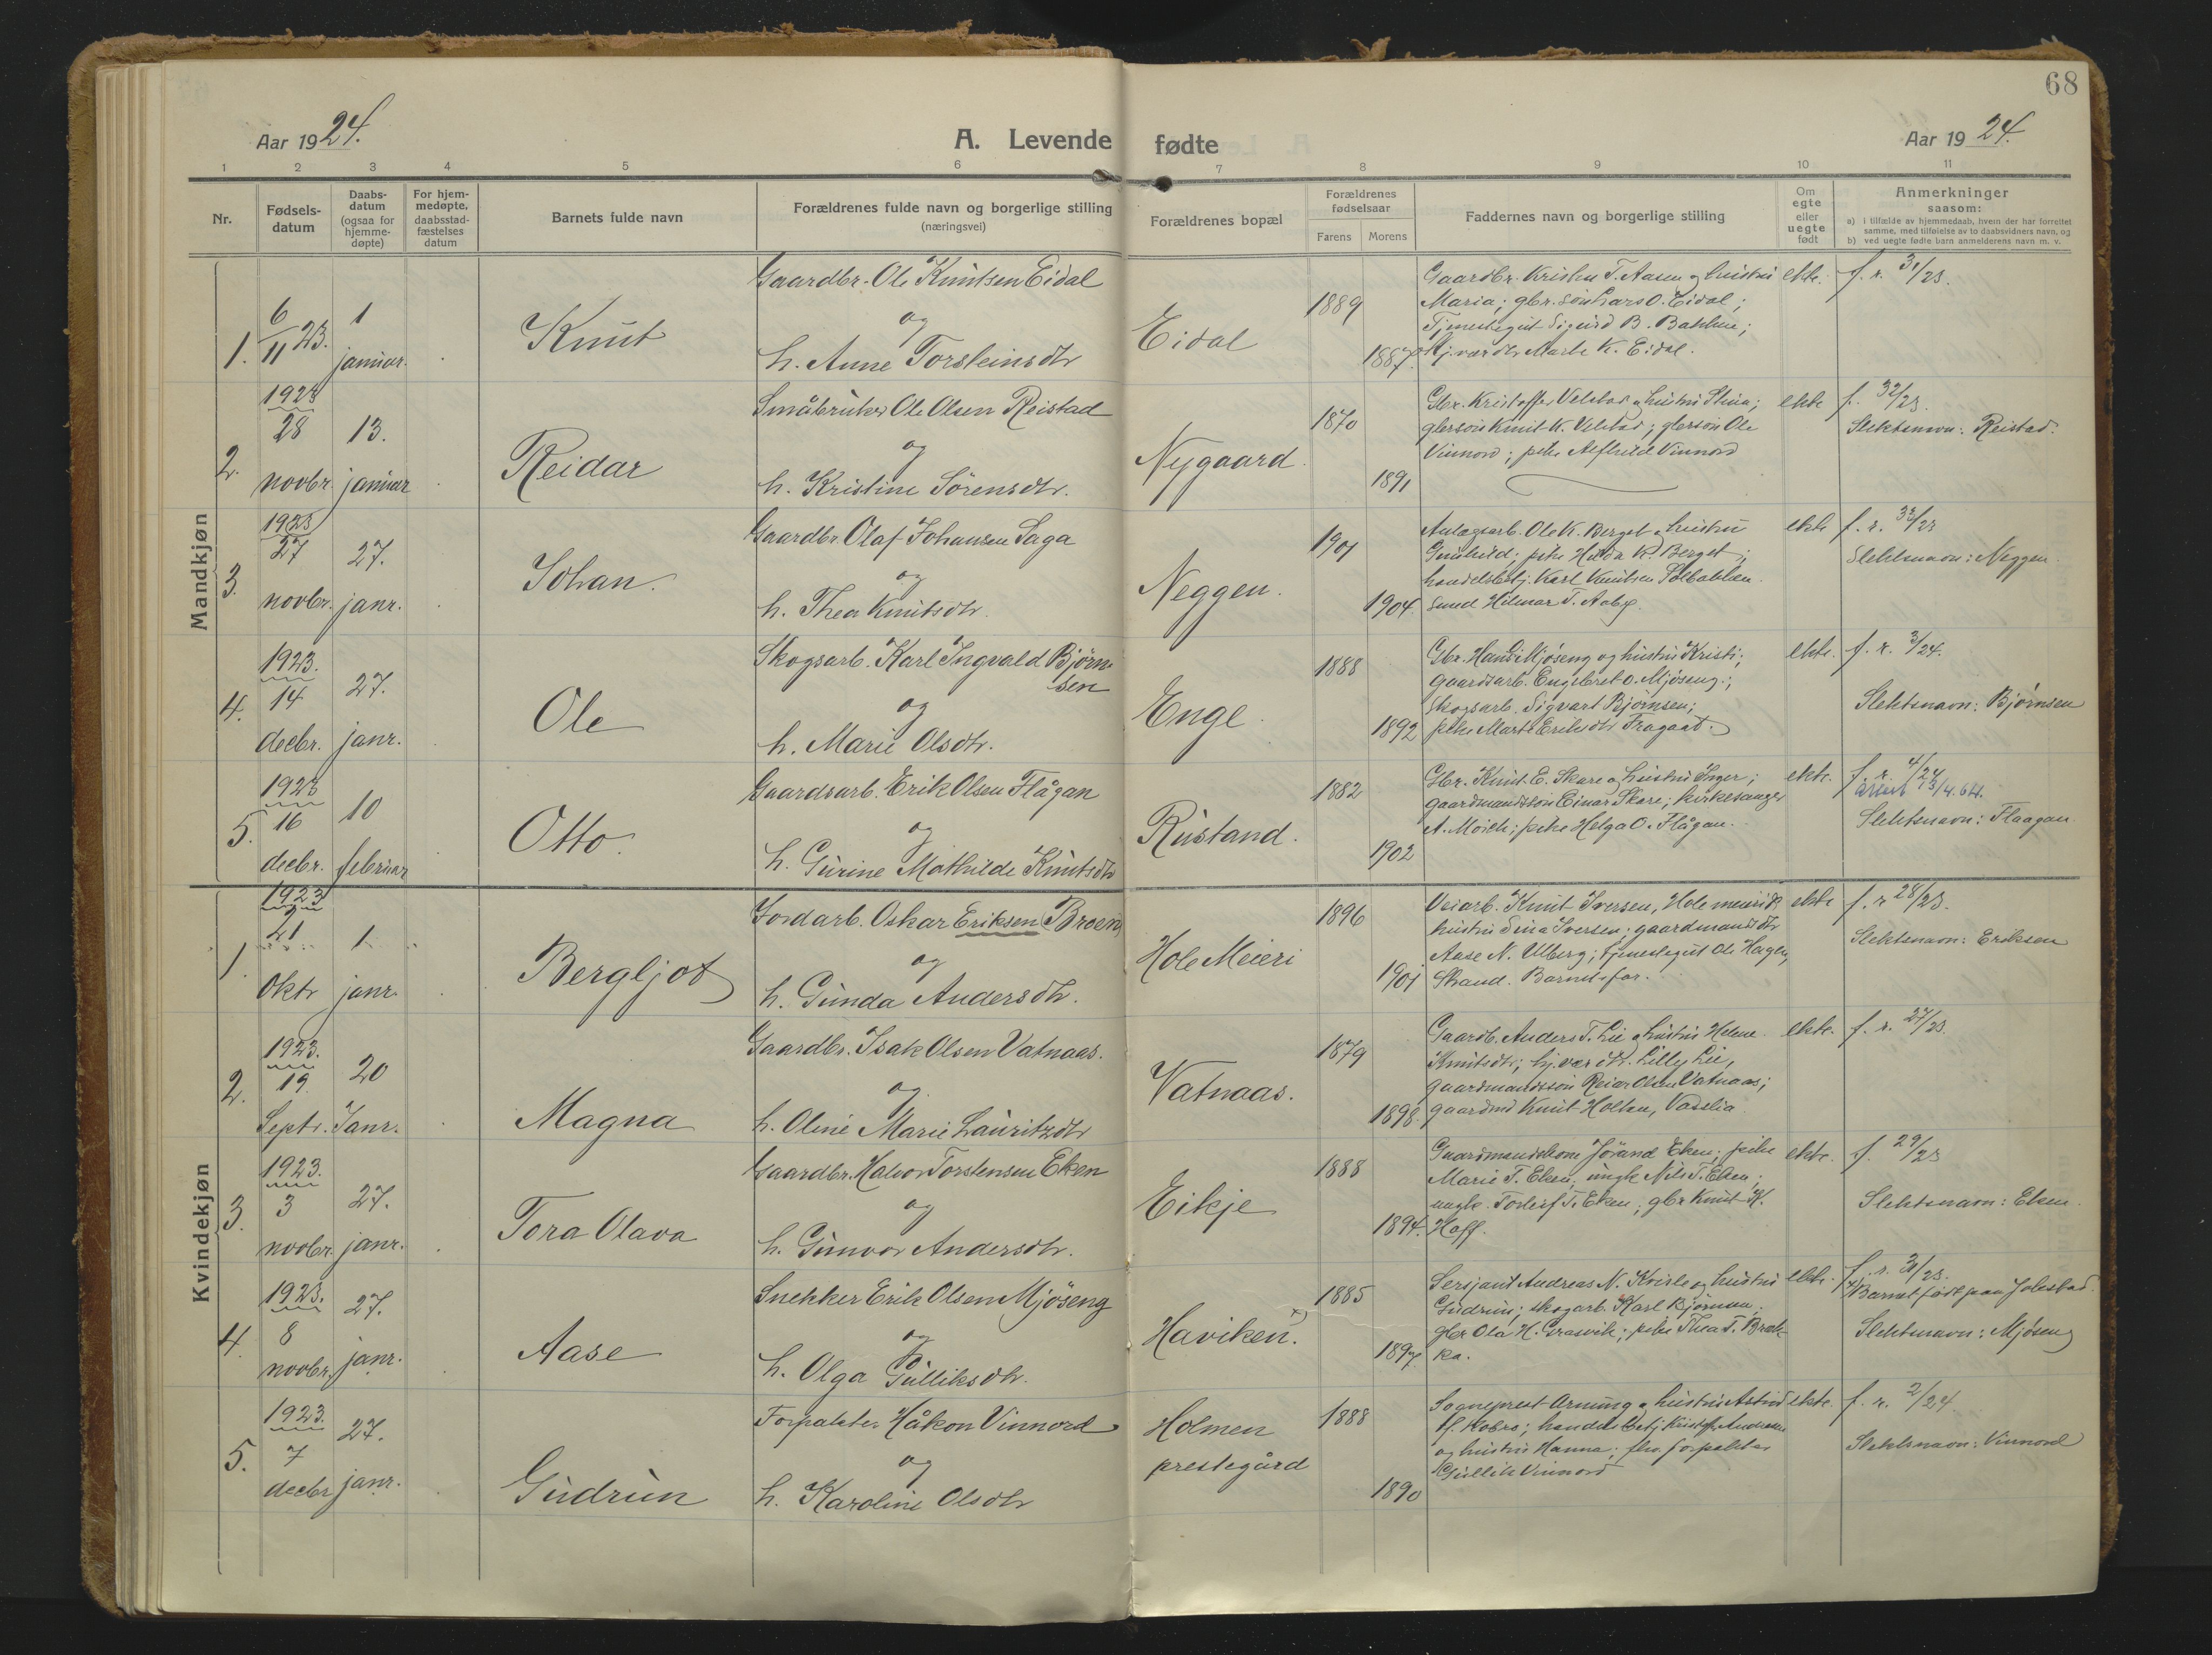 68
Aar 1924.
A. Levende fødte
Aar 1924.
1 2 3 4 5 6 7 8 9 10 11
Nr.
Fødsels-
datum
Daabs-
datum
(ogsaa for
hjemme-
døpte)
For hjem-
medøpte.
daabsstad-
fæstelses
datum
Barnets fulde navn
Forældrenes fulde navn og borgerlige stilling
(næringsvei)
Forældrenes bopæl
Forældrenes
fødselsaar
Farens Morens
Faddernes navn og borgerlige stilling
Om
egte
eller
uegte
født
Anmerkninger
saasom:
a) i tilfælde av hjemmedaab, hvem der har forrettet
samme, med tilføielse av to daabsvidners navn, og
b) ved uegte fødte barn anmelderens navn m. v.
Mandkjøn
1.
6/11 23.
1
januar.
Knut
Gaardbr. Ole Knutsen Eidal
og
h. Anne Torsteinsdtr
Eidal
1889
1887.
Gaardbr. Kristen T. Aasen og hustru
Maria; gbr. søn Lars O. Eidal;
Tjenestegut Sigurd B. Bakken;
Hj.vær. dtr Marte K. Eidal.
ekte.
f. r. 31/23.
2.
1923
28
novbr.
13.
januar
Reidar
Småbruker Ole Olsen Reistad
og
h. Kristine Sörensdtr.
Nygaard.
1870
1891
Gbr. Kristoffer Velstad og hustru Stina;
gbrsøn Knut K. Velstad; gbrsøn Ole
Vinnord; pike Alfhild Vinnord
ekte
f. 32/23.
Slektsnavn: Reistad.
3.
1923
27
novbr.
27.
janr.
Johan.
Gaardbr. Olaf Johansen Saga
og
h. Thea Knutsdtr.
Neggen.
1901
1904.
Anlægsarb. Ole K. Berget og hustru
Gunhild; pike Hilda K. Berget;
handelsbetj. Karl Knutsen Solbakken.
Smed Hilmar T. Aaby.
ekte
f. r. 33/23
Slektsnavn: Neggen.
4.
1923.
14
decbr.
27.
janr.
Ole
Skogsarb. Karl Ingvald Bjørn-
sen
og
h. Marie Olsdtr.
Enge.
1888
1892
Gbr. Hans Mjöseng og hustru Kristi;
gaardsarb. Engebret O. Mjöseng;
skogsarb. Sigvart Bjørnsen;
pike Marte Eriksdtr Fragaat.
ekte.
f. r. 3/24.
Slektsnavn: Bjørnsen
5.
1923
16
decbr.
10
februar
Otto.
Gaardsarb. Erik Olsen Flågan
og
h. Gurine Mathilde Knutsdtr
Rustand.
1882
1902
Gbr. Knut E. Skare og hustru Inger;
gaardmandssøn Einar Skare; kirkesanger
A. Moich; pike Helga O. Flågan.
ekte.
f. r. 4/24
attest 13/4.64.
Slektsnavn: Flaagan.
Kvindekjøn
1.
1923
21
Oktr
1
janr.
Bergljot
Jordarb. Oskar Eriksen Broen
og
h. Gunda Andersdtr.
Hole Meieri
1896
1901
Veiarb. Knut Iversen, Hole meieri og
hustru Sina Iversen; gaardmandsdtr
Aase N. Ulberg; tjenestegut Ole Hagen,
Strand. Barnets far.
ekte
f. r 28/23.
Slektsnavn: Eriksen
2.
1923.
19.
Septr.
20
Janr.
Magna
Gaardbr. Isak Olsen Vatnaas.
og
h. Oline Marie Lauritzdtr
Vatnaas.
1879
1898.
Gaardb. Anders T. Lie og hustru Helene
Knutsdtr; hj.vær. dtr. Lilly Lie,
gaardmandssøn Reiar Olsen Vatnaas;
gaardmd Knut Holten, Vasslia.
ekte.
f. r. 27/23.
3.
1923.
3
novbr.
27.
janr.
Tora Olava
Gaardbr. Halvor Torstensen Eken
og
h. Gunvor Andersdtr.
Eikje
1888
1894.
Gaardmandskone Jörand Eken; pike
Marie T. Eken; ungk. Nils T. Eken;
ungk. Torleif T. Eken; gbr Knut K.
Hoff.
ekte.
f. 29/23
Slektsnavn: Eken.
4.
1923.
8
novbr.
27.
janr.
Aase
Snekker Erik Olsen Mjöseng
og
h. Olga Gulliksdtr.
Haviken. x)
1885
1897.
Sersjant Andreas N. Kvisle og hustru
Gudrun; skogarb. Karl Bjørnsen;
gbr Ola H. Grasvik; pike Thea T. Bræk-
ka.
ekte.
f. r. 30/23.
x) Barnet født paa Jolestad.
Slektsnavn: Mjöseng
5.
1923.
7
decbr
27.
janr.
Gudrun
Forpakter Håkon Vinnord
og
h. Karoline Olsdtr
Holmen
prestegård
1888
1890
Sogneprest Arnung og hustru Astrid
f. Kobro; handelsbetj Kristoffer Andersen
og hustru Hanna; fhv. forpakter
Gullik Vinnord
ekte.
f. r. 2/24
Slektsnavn: Vinnord